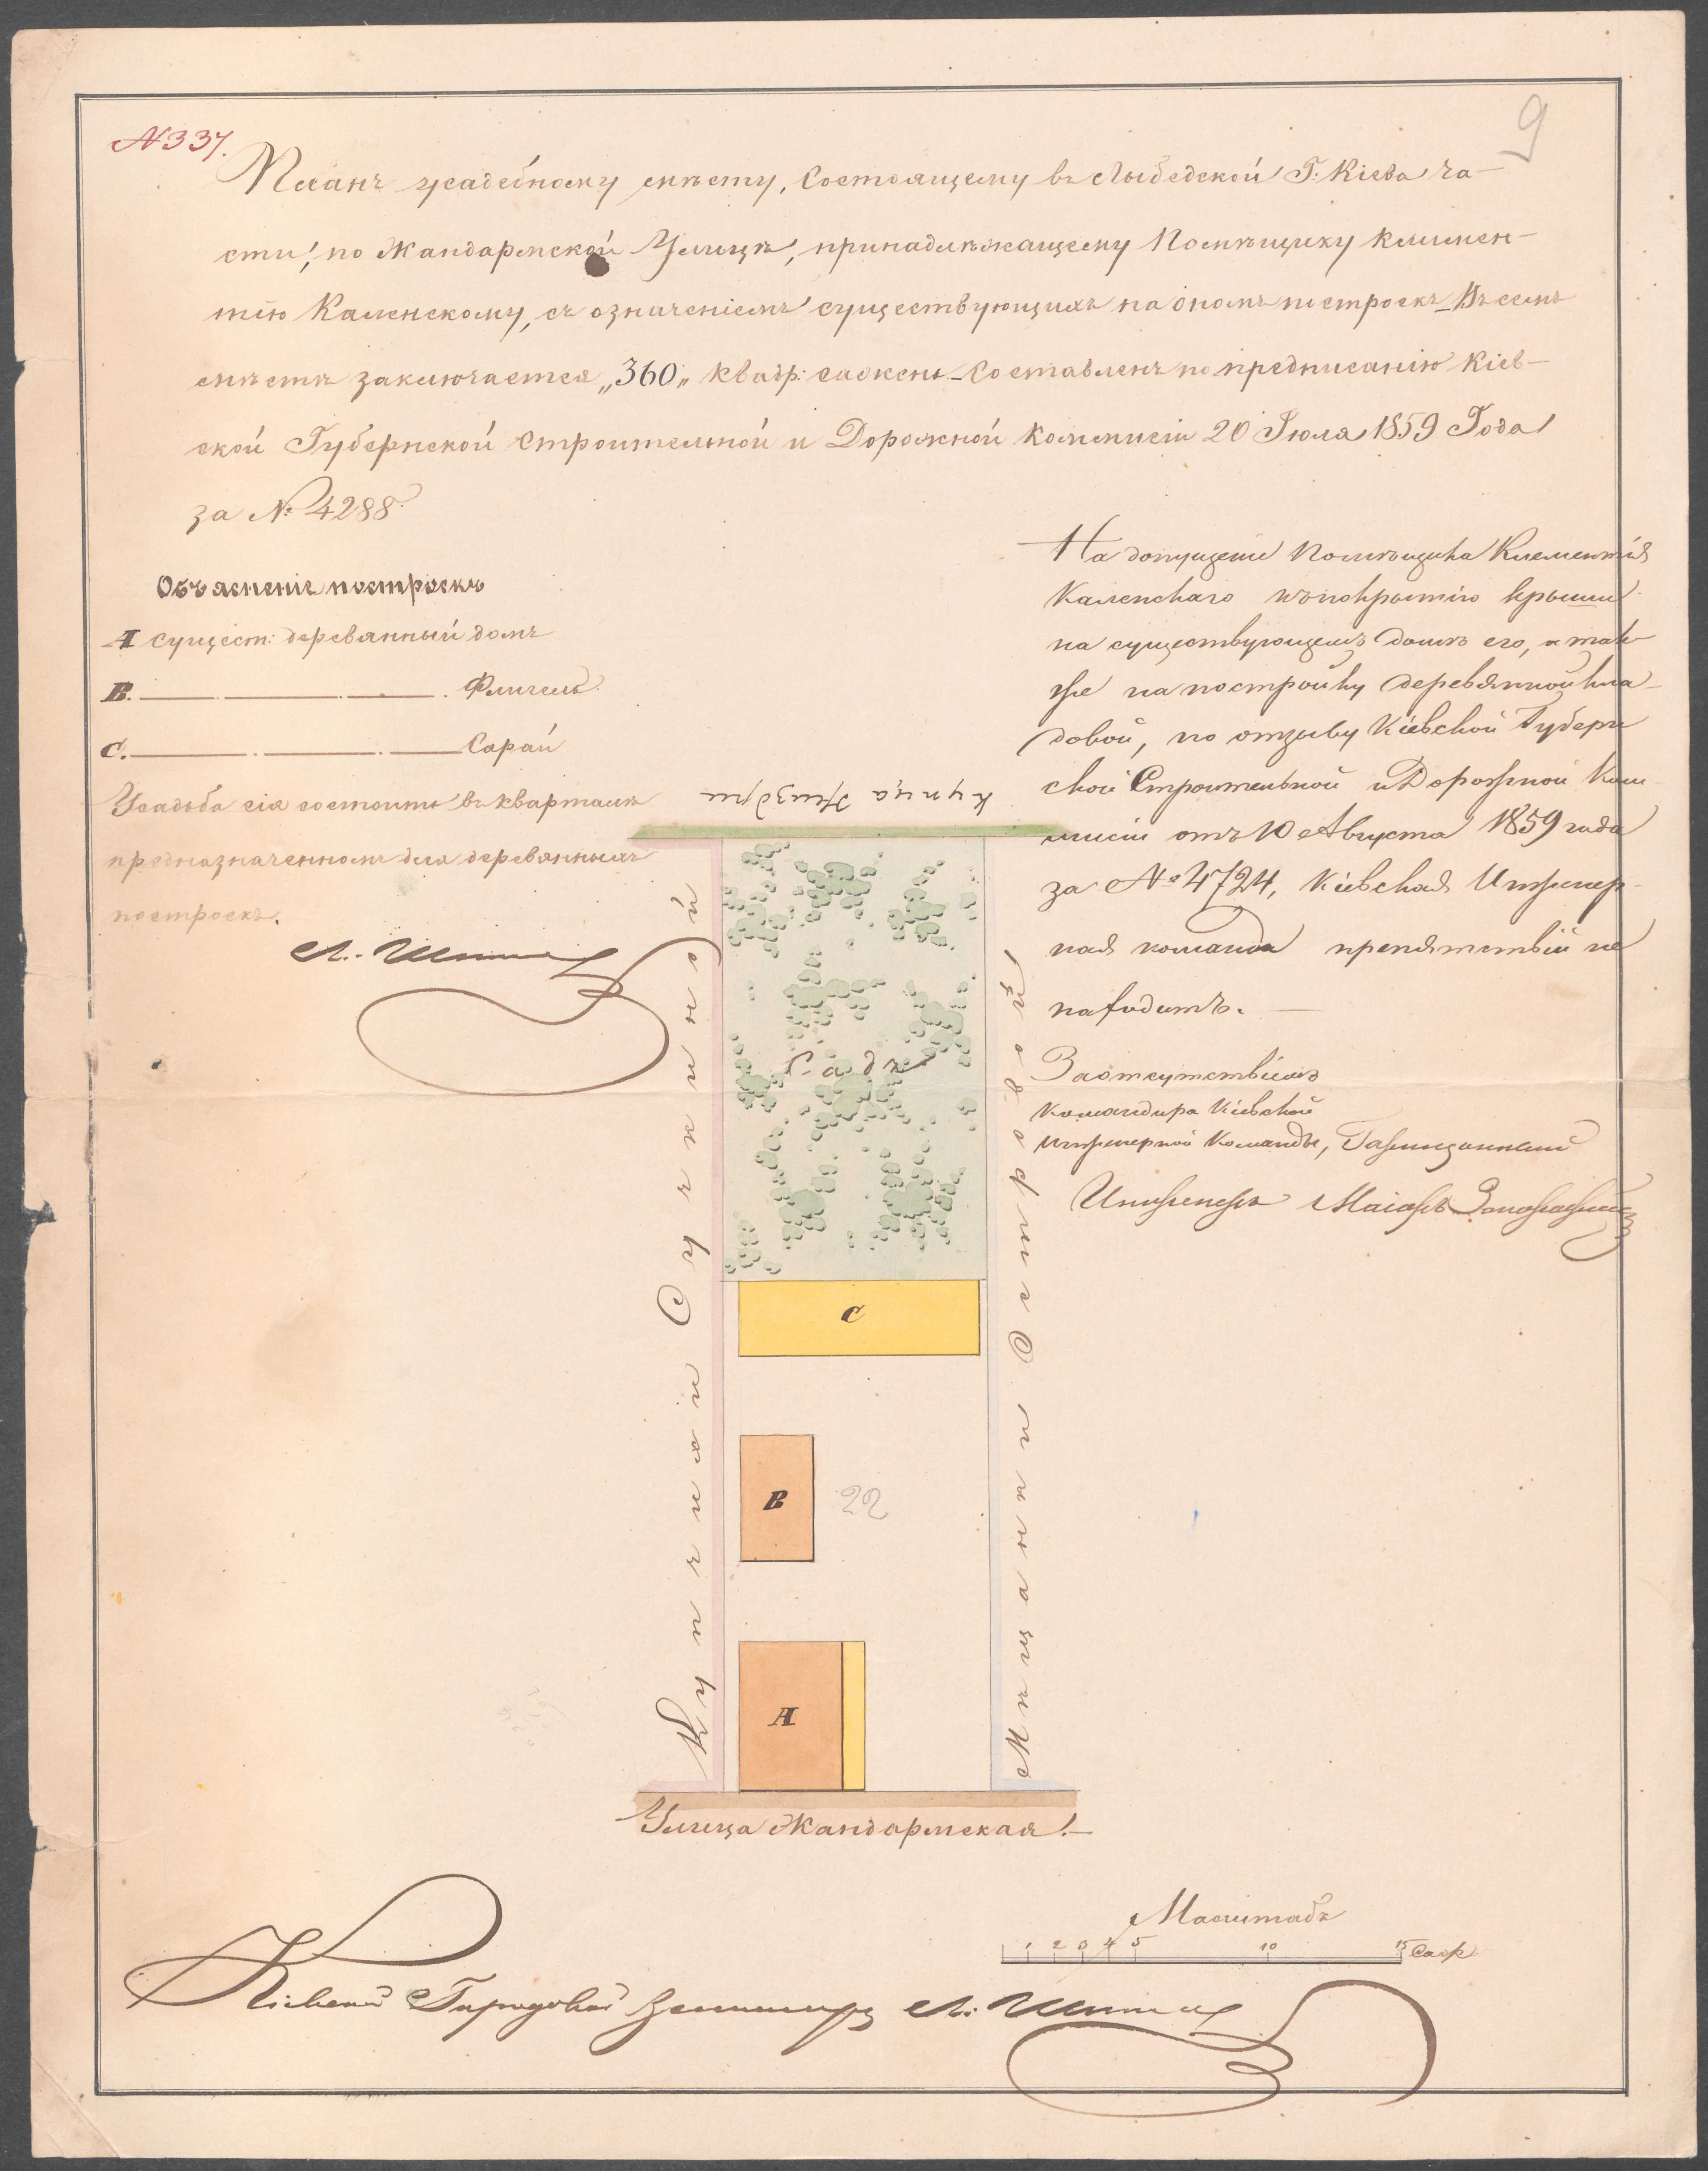 № 337.
9
Планъ усадебному мѣсту, состоящему въ Лыбедской Г: Кіева ча-
сти, по Жандармской Улицѣ, принадлежащему Помѣщику Климен-
тію Каленскому, съ означеніемъ существующихъ на ономъ построекъ – Въ семъ
мѣстѣ заключается „360„ квадр: сажень – Составленъ по предписанію Кіев-
ской Губернской Строительной и Дорожной Коммисіи 20 Іюля 1859 Года
за № 4288.
Объясненіе построекъ
А сущест: деревянный домъ
В. Флигель
С. Сарай
Усадьба сія состоитъ въ кварталѣ
предназначенномъ для деревянныхъ
построекъ.
На допущеніе Помѣщика Клементія
Каленскаго къ покрытію крыши
на существующемъ домѣ его, а так-
же на постройку деревянной кла-
довой, по отзыву Кіевской Губерн
ской Строительной и Дорожной Ком-
мисіи отъ 10 Августа 1859 года
за № 4724, Кіевская Инженер-
ная команда препятствій не
находитъ.
За отсутствіемъ
Командира Кіевской
Инженерной Команды,
Инженеръ Маіоръ
Купца
Купчихи
Садъ
С
В
22
А
Улица Жандармская.
Масштабъ
1 2 3 4 5 10 15 Саж.
Кіевскій Городовой Землемѣръ